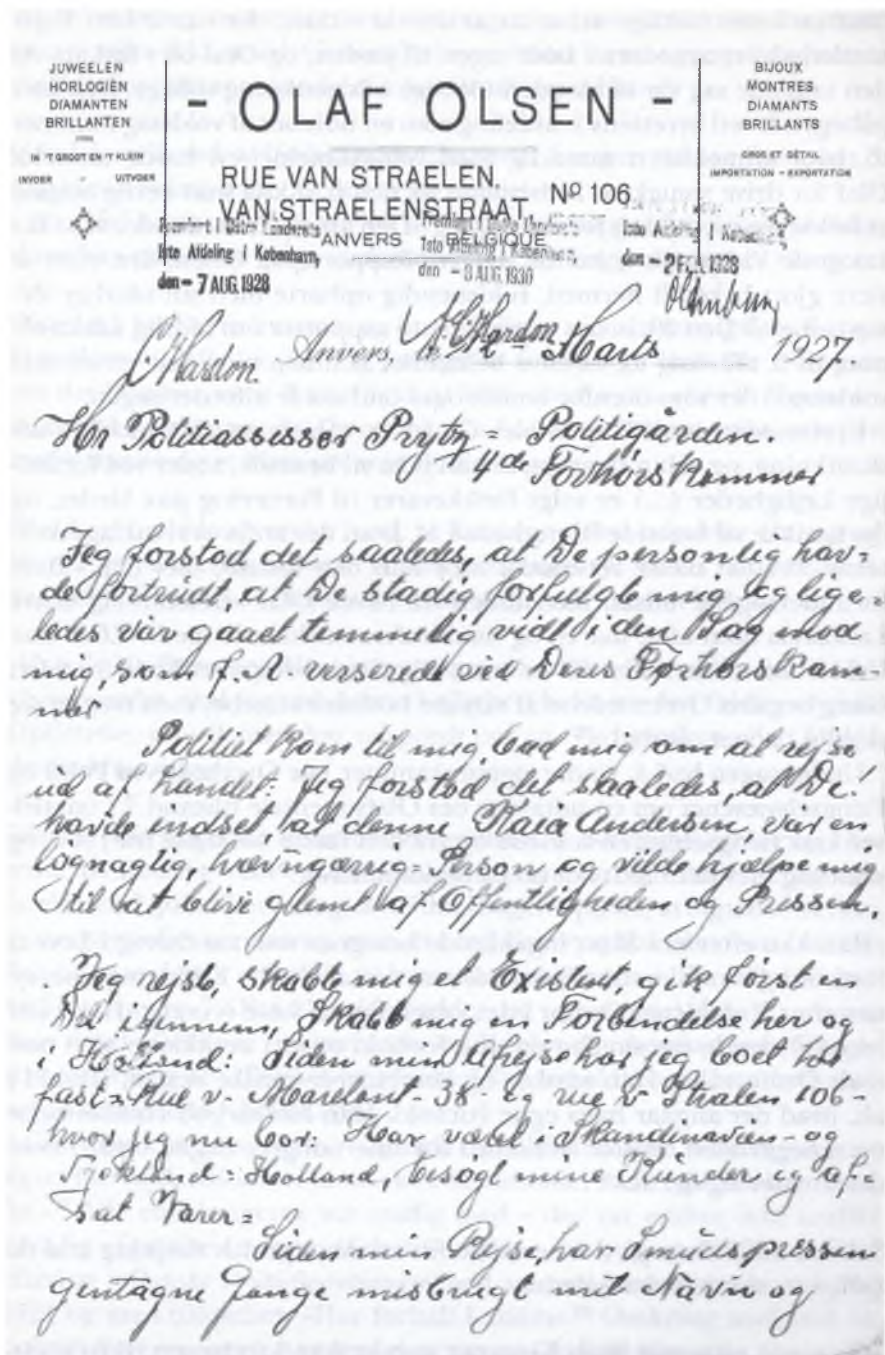 JUWEELEN
HORLOGIËN
DIAMANTEN
BRILLANTEN
IN 'T GROOT EN 'T KLEIN
INVOER UITVOER
- OLAF OLSEN -
RUE VAN STRAELEN,
VAN STRAELENSTRAAT No 106
ANVERS BELGIQUE
BIJOUX
MONTRES
DIAMANTS
BRILLANTS
GROS ET DÉTAIL
IMPORTATION - EXPORTATION
1ste Afdeling i København,
den - 7 AUG. 1928
den - 8 AUG. 1930
1ste Afdeling i
den - 2 1928
Hardon
Hardon
Anvers, le Marts 1927
Hr. Politiassessor Prytz = Politigården.
4de Forhørskammer
Jeg forstod det saaledes, at De personlig hav=
de fortrudt, at De stadig forfulgte mig, og lige=
ledes var gaaet temmelig vidt i den Sag mod
mig, som f. A. verserede ved Deres Forhørskam=
mer.
Politiet kom til mig, bad mig om at rejse
ud af Landet: Jeg forstod det saaledes, at De
havde indset, at denne Kaia Andersen, var en
løgnagtig, hævngærrig = Person, og vilde hjælpe mig
til at blive glemt af Offentligheden og Pressen.
Jeg rejste, skabte mig en Existens, gik først en
Del igennem, skabte mig en Forbindelse her og
i Holland: Siden min Afrejse har jeg boet her
fast = Rue v. 38 og rue v. Stralen 106 -
hvor jeg nu bor: Har været i Skandinavien - og
Tyskland = Holland, besøgt mine Kunder, og af=
sat Varer =
Siden min Rejse, har Smudspressen
gentagne Gange misbrugt mit Navn og